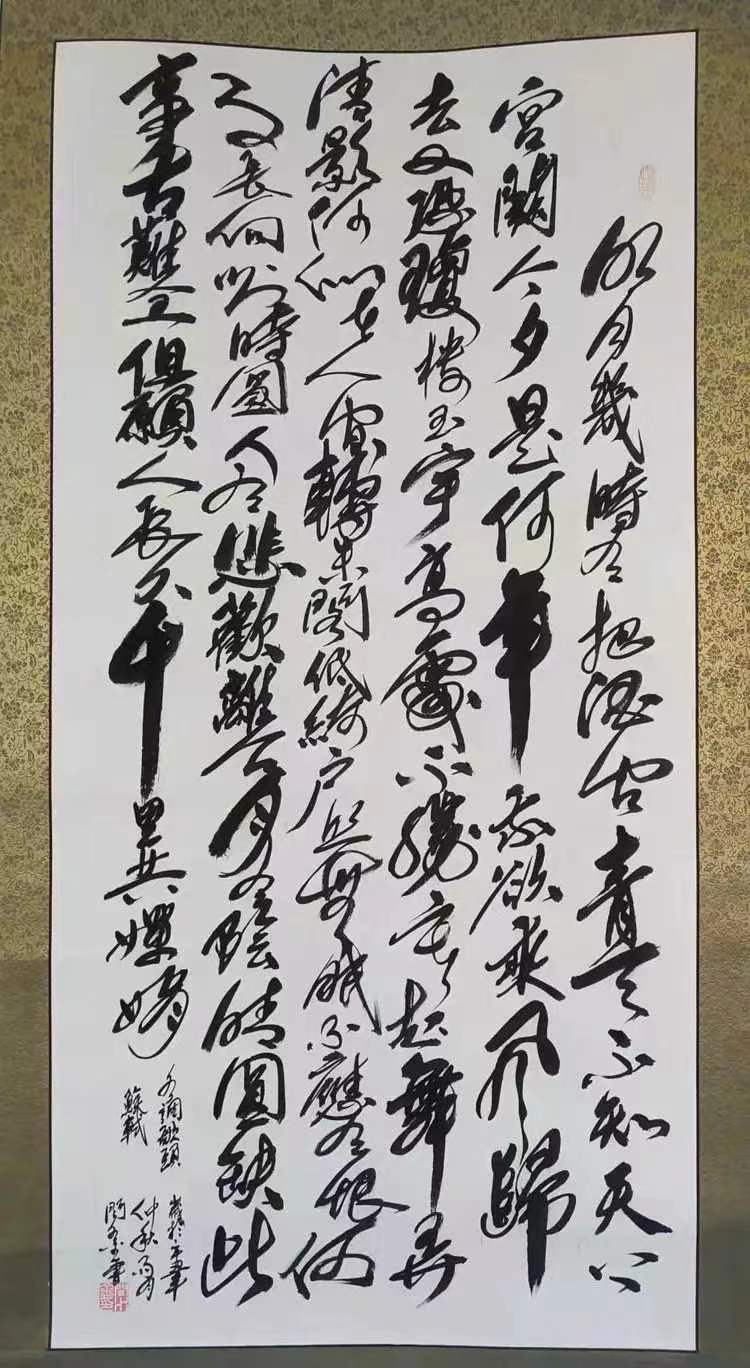 明月幾時有把酒问青天不知天上
宮闕今夕是何年我欲乘風歸
去又恐瓊樓玉宇高處不勝寒起舞弄
清影何似在人间轉朱閣低綺户照無眠不應有恨何
事長向别時圓人有悲歡離合月有陰晴圓缺此
事古難全但願人長久千里共嬋娟
水調歌頭
蘇軾
仲秋